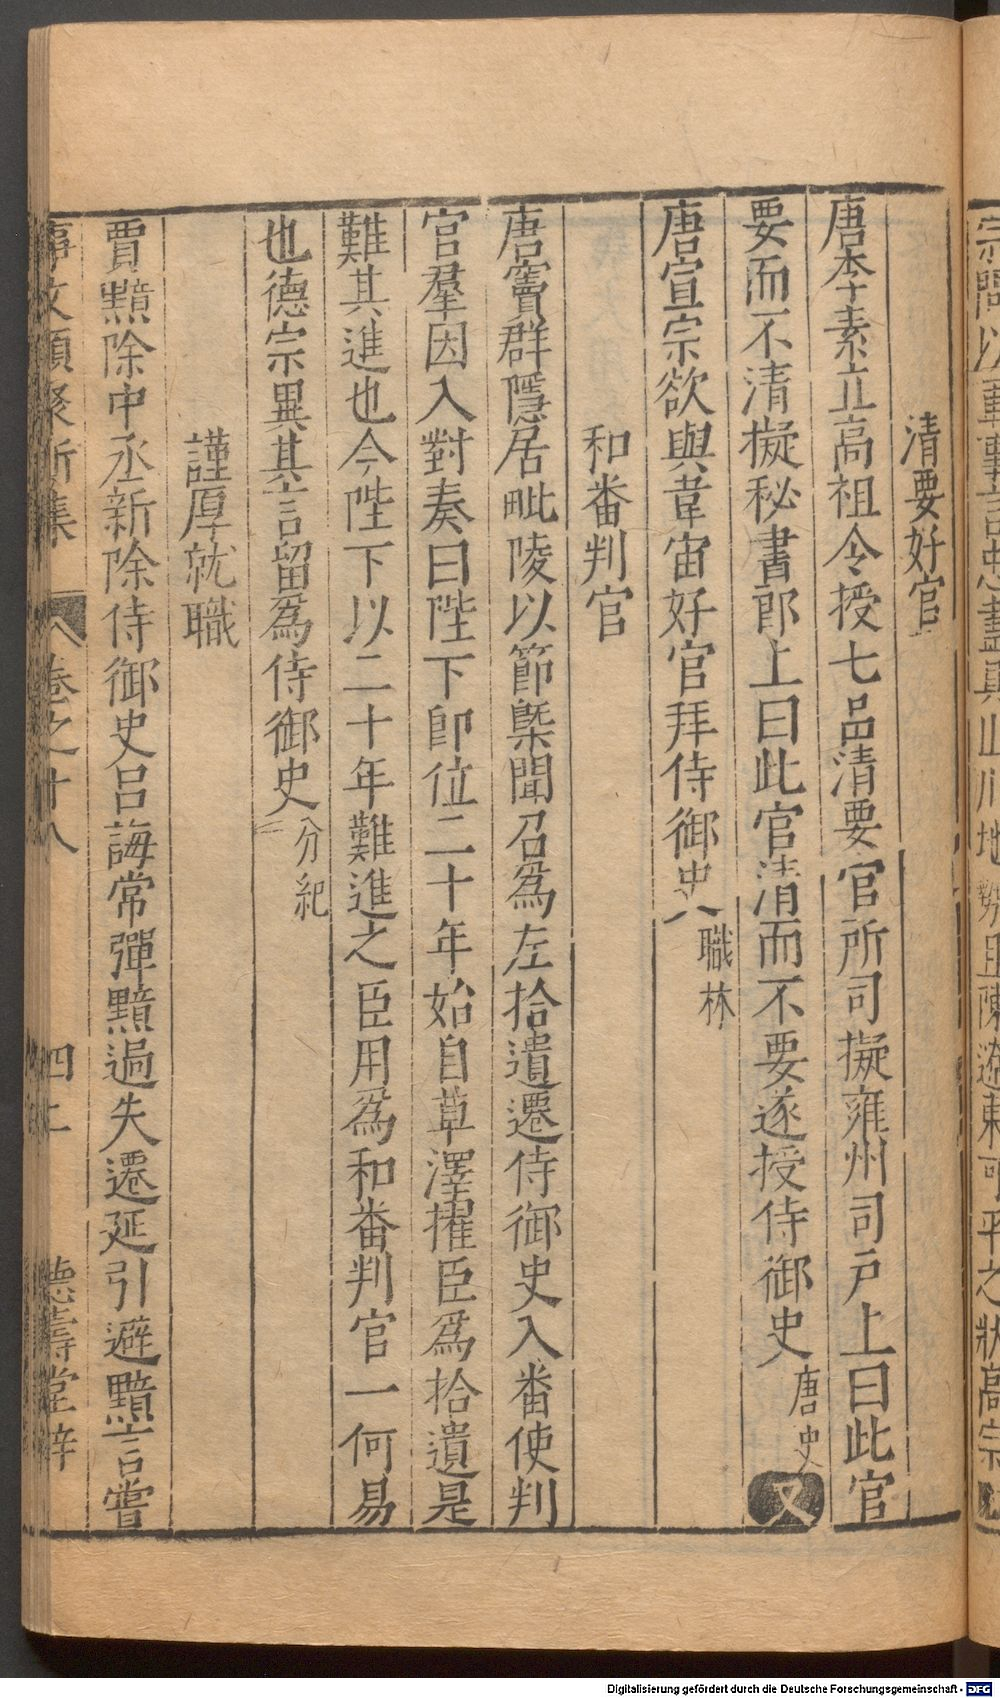 清要好官
唐李素立高祖令授七品清要官所司擬雍州司戶上曰此官
要而不清擬秘書郎上曰此官清而不要遂授侍御史唐史又
唐宣宗欲與韋宙好官拜侍御史職林
和番判官
唐竇群隱居毗陵以節槩聞召爲左拾遺遷侍御史入番使判
官羣因入對奏曰陛下即位二十年始自草澤擢臣爲拾遺是
難其進也今陛下以二十年難進之臣用爲和番判官一何易
也德宗異其言留爲侍御史分紀
謹厚就職
賈黯除中丞新除侍御史呂誨常彈黯過失遷延引避黯言嘗
事文類聚新集 卷之十八 四十 德壽堂梓
Digitalisierung gefördert durch die Deutsche Forschungsgemeinschaft - DFG